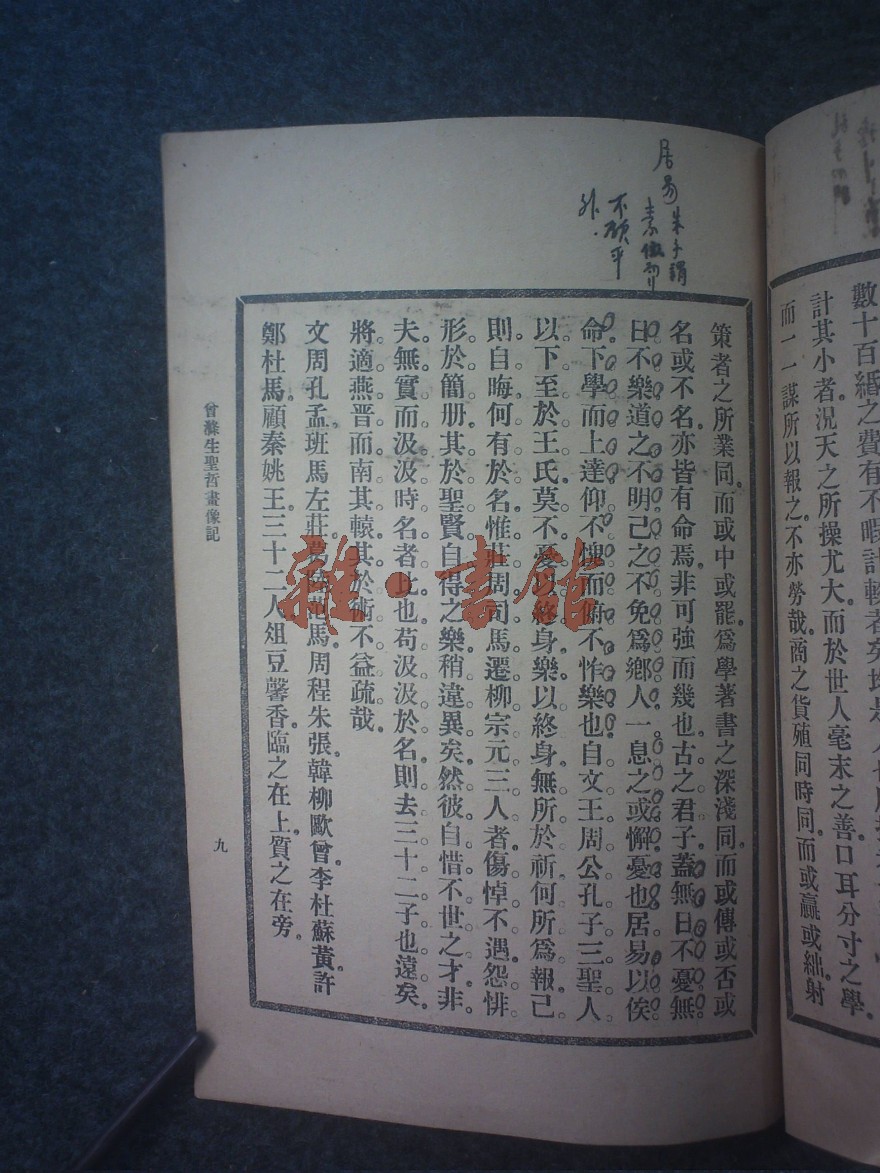 數十百緡之費有不暇計較者矣
計其小者況天之所操尤大而於世人毫末之善口耳分寸之學
而一一謀所以報之不亦勞哉商之貨殖同時同而或贏或絀射
居易朱子謂
素位而行
不願乎
外
策者之所業同而或中或罷爲學著書之深淺同而或傳或否或
名或不名亦皆有命焉非可強而幾也古之君子蓋無日不憂無
日不樂道之不明己之不免爲鄉人一息之或懈憂也居易以俟
命下學而上達仰不愧而俯不怍樂也自文王周公孔子三聖人
以下至於王氏莫不憂以終身樂以終身無所於祈何所爲報己
則自晦何有於名惟莊周司馬遷柳宗元三人者傷悼不遇怨悱
形於簡册其於聖賢自得之樂稍違異矣然彼自惜不世之才非
夫無實而汲汲時名者比也苟汲汲於名則去三十二子也遠矣
將適燕晋而南其轅其於術不益疏哉
文周孔孟班馬左莊葛陸范馬周程朱張韓柳歐曾李杜蘇黃許
鄭杜馬顧秦姚王三十二人俎豆馨香臨之在上質之在旁
曾滌生聖哲畫像記
九
雜·書館